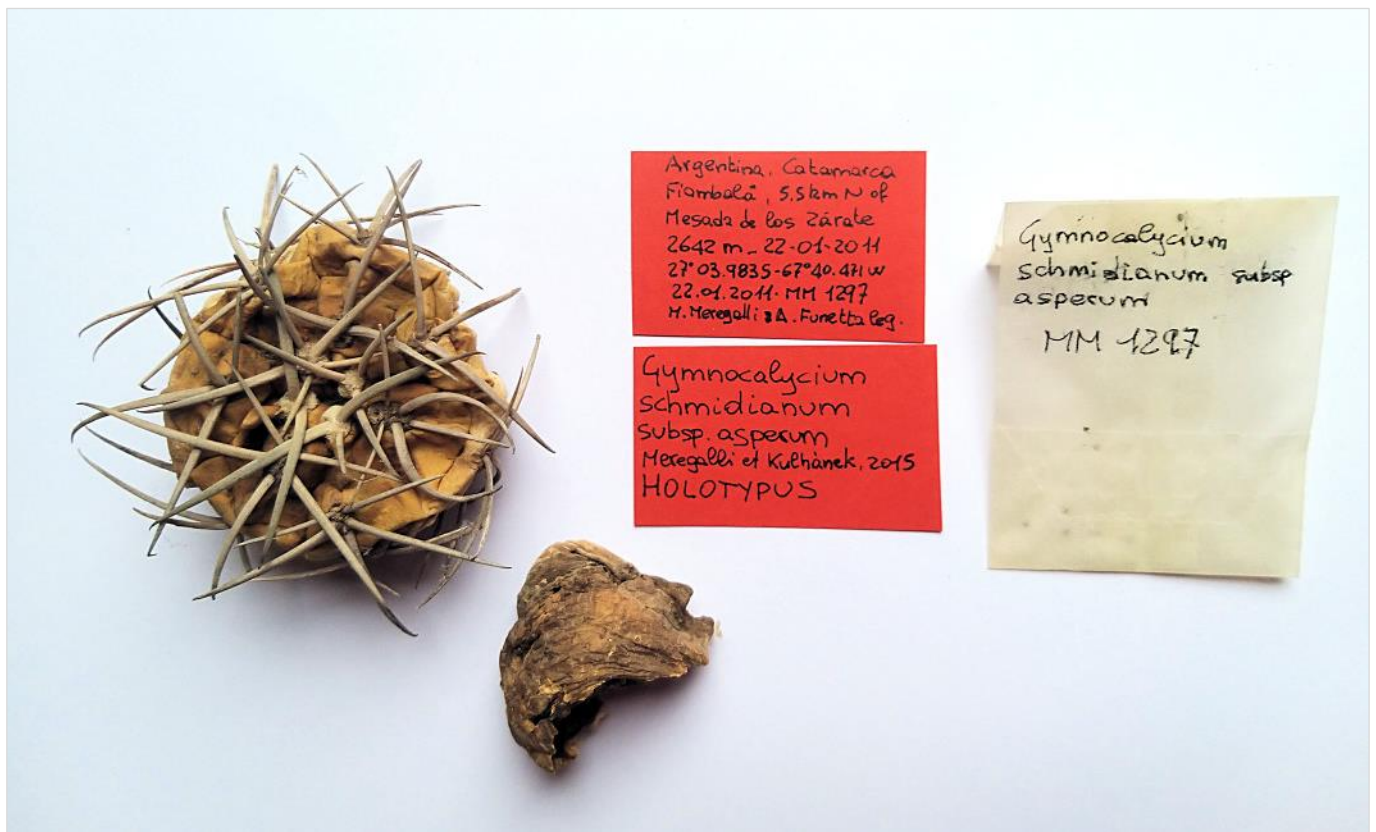 Argentina, Catamarca
Fiambalà, 5.5 km N of
Mesada de los Zárate
2642 m_ 22-01-2011
27°03.983S-67°40.471W
22.01.2011. MM 1297
M. Meregalli & A. Funetta leg.
Gymnocalycium
schmidianum
subsp. asperum
Meregalli et Kulhànek, 2015
HOLOTYPUS
Gymnocalycium
schmidianum subsp
asperum
MM 1297